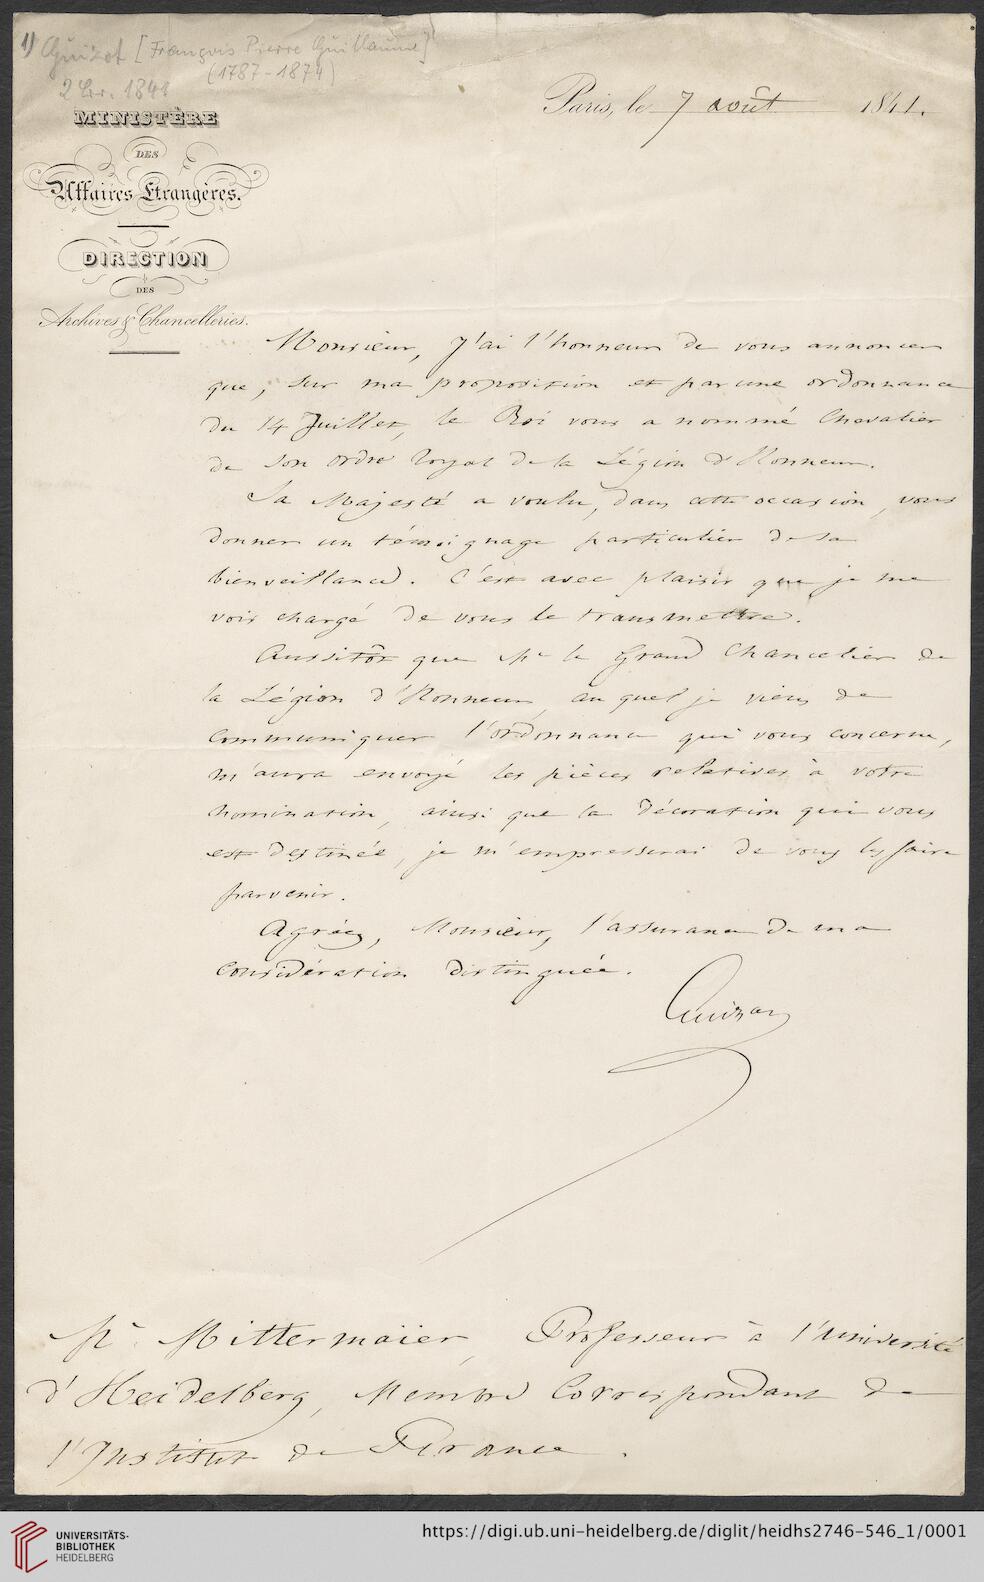 1) Guizot [François Pierre Guillaume]
(1787-1874)
2 Br. 1841
MINISTÈRE
DES
Affaires Etrangères.
DIRECTION
DES
Archives & Chancelleries.
Paris, le 7 août 1841.
Monsieur, j'ai l'honneur de vous annoncer
que, sur ma proposition et par une ordonnance
du 14 Juillet, le Roi vous a nommé Chevalier
de son ordre royal de la Légion d'Honneur.
Sa Majesté a voulu, dans cette occasion, vous
donner un témoignage particulier de sa
bienveillance. C'est avec plaisir que je me
vois chargé de vous le transmettre.
Aussitôt que Mr le Grand Chancelier de
la Légion d'Honneur, auquel je viens de
communiquer l'ordonnance qui vous concerne,
m'aura envoyé les pièces relatives à votre
nomination, ainsi que la décoration qui vous
est destinée, je m'empresserai de vous les faire
parvenir.
Agréez, Monsieur, l'assurance de ma
considération distinguée.
Guizot
Mr Mittermaïer, Professeur à l'université
d'Heidelberg, Membre Correspondant de
l'Institut de France.
UNIVERSITÄTS-
BIBLIOTHEK
HEIDELBERG
https://digi.ub.uni-heidelberg.de/diglit/heidhs2746-546_1/0001